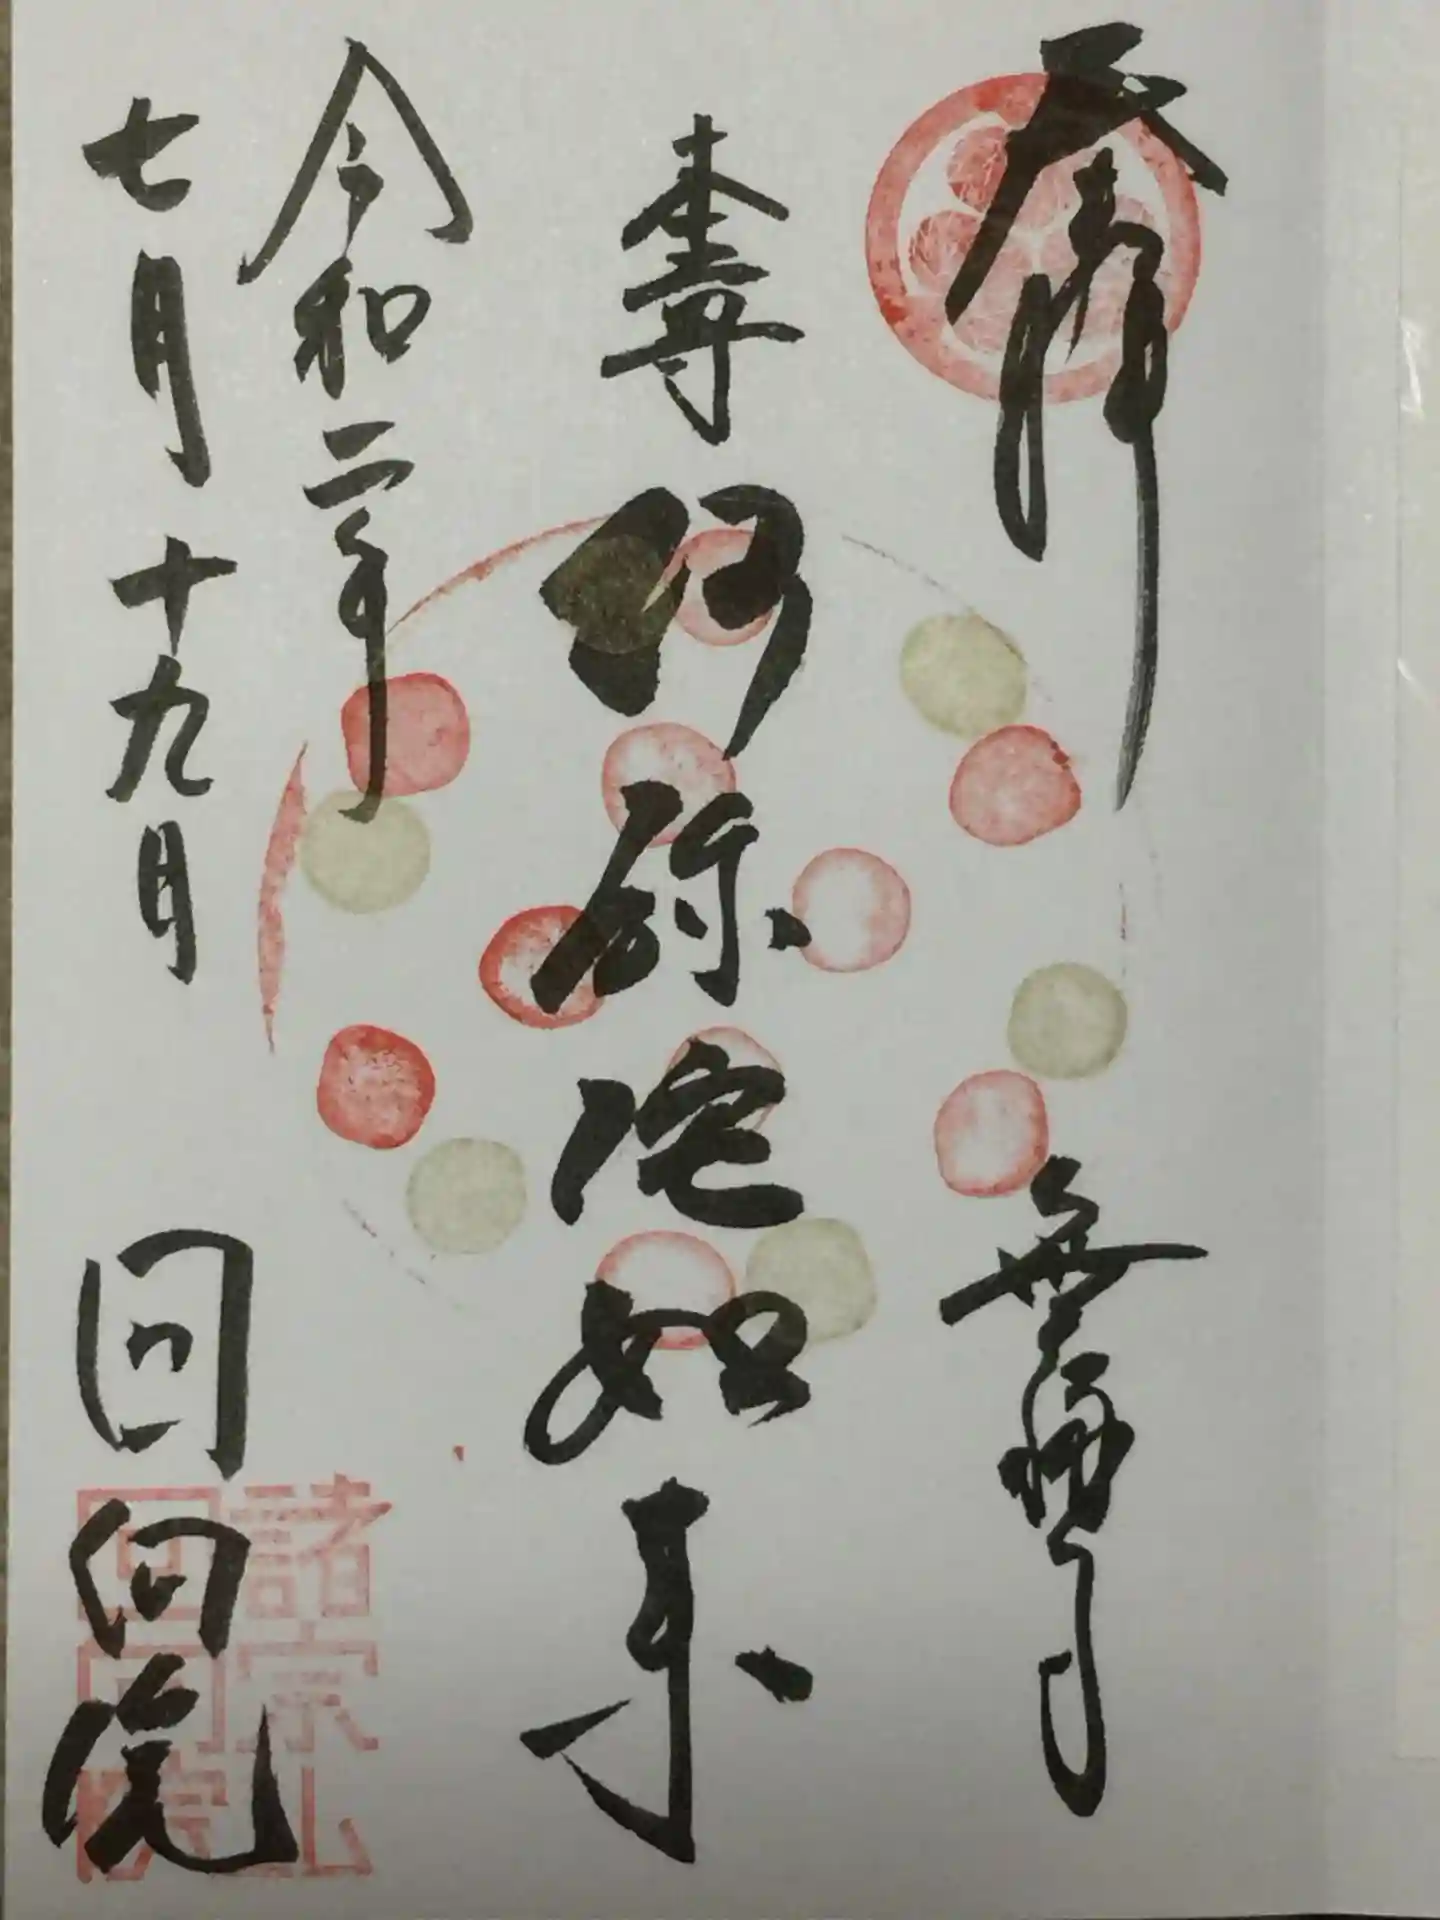 奉拝 無縁寺
本尊 阿弥陀如来
令和二年
七月十九日
回向院
諸宗山
回向院